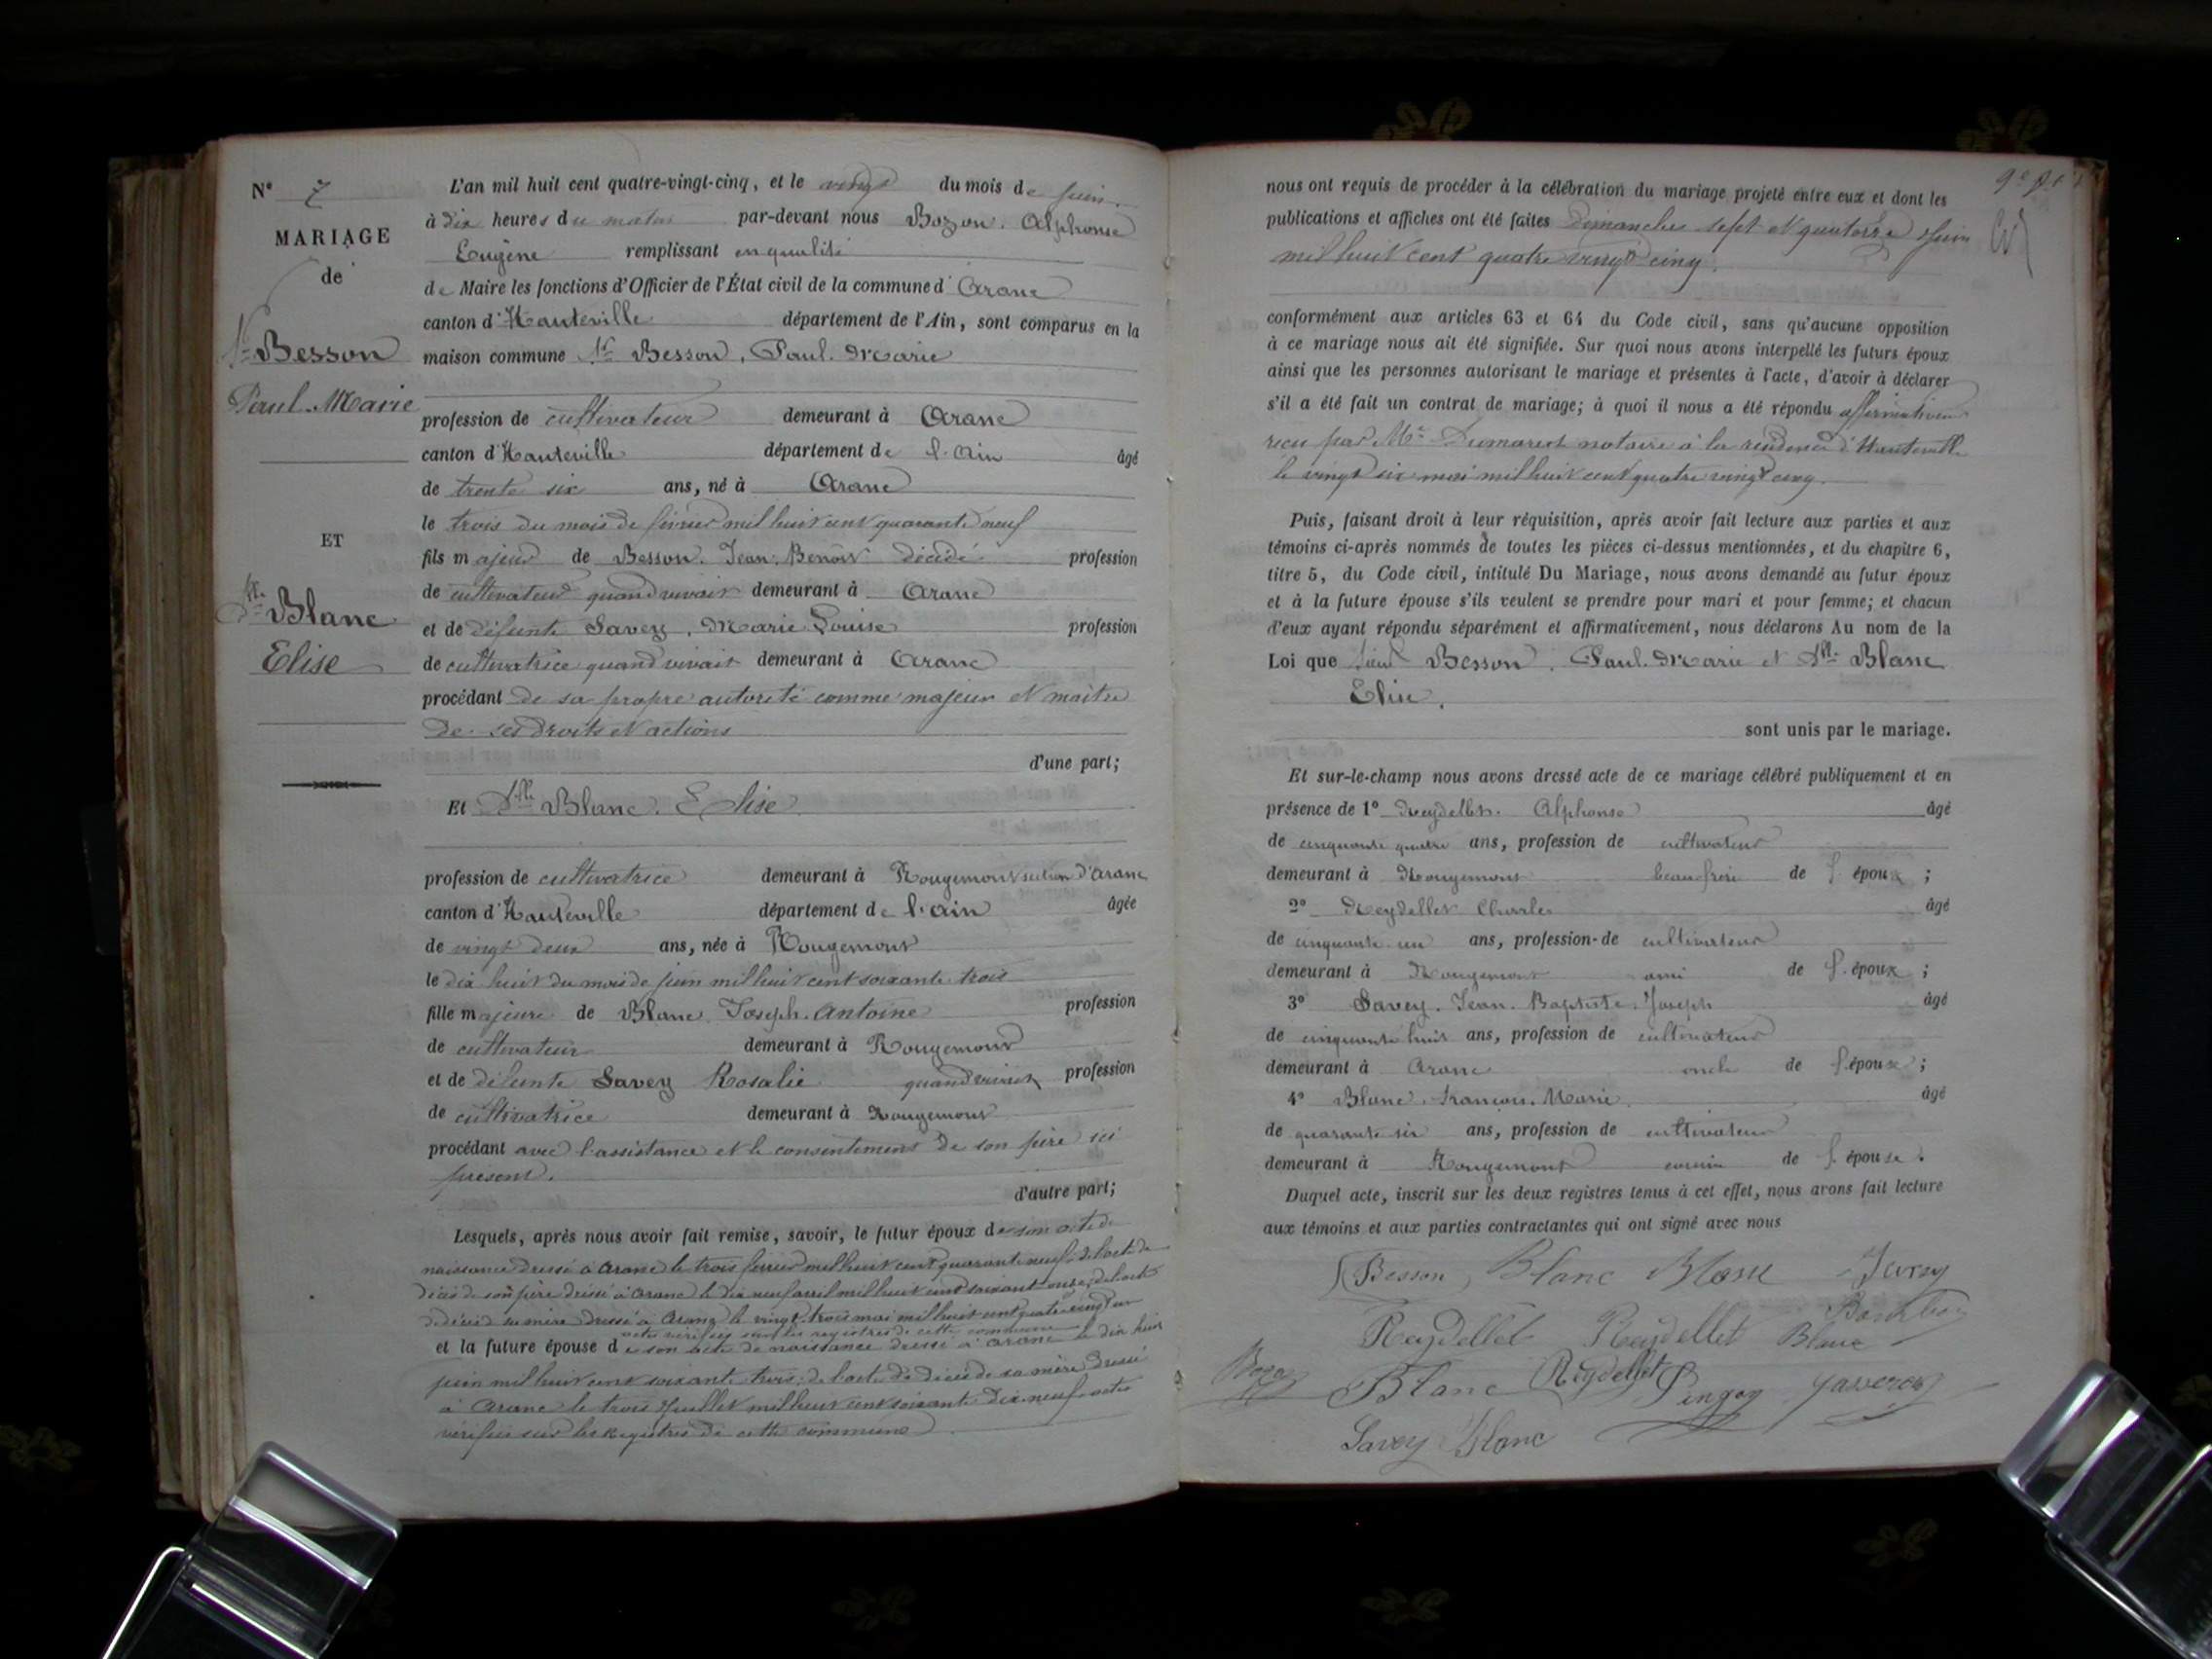 N° 7
MARIAGE
de
Sr Besson
Paul. Marie
ET
Dlle Blanc
Elise
L'an mil huit cent quatre-vingt-cinq, et le vingt du mois de juin
à dix heures du matin par-devant nous Bozon. Alphonse
Eugène remplissant en qualité
de Maire les fonctions d'Officier de l'État civil de la commune d'Aranc
canton d'Hauteville département de l'Ain, sont comparus en la
maison commune Sr Besson, Paul. Marie
profession de cultivateur demeurant à Aranc
canton d'Hauteville département de l'Ain âgé
de trente six ans, né à Aranc
le trois du mois de février mil huit cent quarante neuf
fils majeur de Besson. Jean. Benoît décédé profession
de cultivateur quand vivait demeurant à Aranc
et de défunte Savey, Marie Louise profession
de cultivatrice quand vivait demeurant à Aranc
procédant de sa propre autorité comme majeur et maître
de ses droits et actions
d'une part;
Et Dlle Blanc. Elise
profession de cultivatrice demeurant à Rougemont section d'Aranc
canton d'Hauteville département de l'ain âgée
de vingt deux ans, née à Rougemont
le dix huit du mois de juin mil huit cent soixante trois
fille majeure de Blanc. Joseph. Antoine profession
de cultivateur demeurant à Rougemont
et de défunte Savey Rosalie quand vivait profession
de cultivatrice demeurant à Rougemont
procédant avec l'assistance et le consentement de son père ici
présent.
d'autre part;
Lesquels, après nous avoir fait remise, savoir, le futur époux de son acte de
naissance dressé à Aranc le trois février mil huit cent quarante neuf de l'acte de
décès de son père dressé à Aranc le dix neuf avril mil huit cent soixante onze, de l'acte
de décès de sa mère dressé à Aranc le vingt trois mai mil huit cent quatre vingt un
actes vérifiés sur les registres de cette commune
et la future épouse de son acte de naissance dressé à Aranc le dix huit
juin mil huit cent soixante trois; de l'acte de décès de sa mère dressé
à Aranc le trois juillet mil huit cent soixante dix-neuf actes
vérifiés sur les registres de cette commune
nous ont requis de procéder à la célébration du mariage projeté entre eux et dont les
publications et affiches ont été faites dimanches sept et quatorze juin
mil huit cent quatre vingt cinq.
conformément aux articles 63 et 64 du Code civil, sans qu'aucune opposition
à ce mariage nous ait été signifiée. Sur quoi nous avons interpellé les futurs époux
ainsi que les personnes autorisant le mariage et présentes à l'acte, d'avoir à déclarer
s'il a été fait un contrat de mariage; à quoi il nous a été répondu
reçu par Me Dumarest notaire à la résidence d'Hauteville
le vingt six mai mil huit cent quatre vingt cinq.
Puis, faisant droit à leur réquisition, après avoir fait lecture aux parties et aux
témoins ci-après nommés de toutes les pièces ci-dessus mentionnées, et du chapitre 6,
titre 5, du Code civil, intitulé Du Mariage, nous avons demandé au futur époux
et à la future épouse s'ils veulent se prendre pour mari et pour femme; et chacun
d'eux ayant répondu séparément et affirmativement, nous déclarons Au nom de la
Loi que sieur Besson. Paul. Marie et Dlle Blanc
Elise.
sont unis par le mariage.
Et sur-le-champ nous avons dressé acte de ce mariage célébré publiquement et en
présence de 1° Reydellet. Alphonse âgé
de cinquante quatre ans, profession de cultivateur
demeurant à Rougemont beau frère de l'époux ;
2° Reydellet Charles âgé
de cinquante un ans, profession de cultivateur
demeurant à Rougemont ami de l'époux ;
3° Savey. Jean. Baptiste. Joseph âgé
de cinquante huit ans, profession de cultivateur
demeurant à Aranc oncle de l'épouse ;
4° Blanc. François. Marie âgé
de quarante six ans, profession de cultivateur
demeurant à Rougemont cousin de l'épouse.
Duquel acte, inscrit sur les deux registres tenus à cet effet, nous avons fait lecture
aux témoins et aux parties contractantes qui ont signé avec nous
Besson Blanc Blanc Savey
Reydellet Reydellet Blanc
Blanc Reydellet Pingoy
Savey Blanc